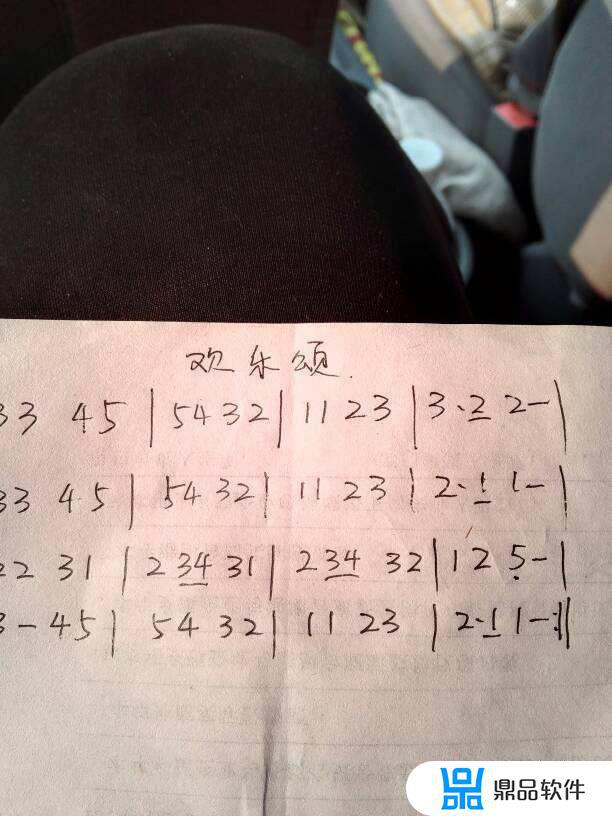 欢乐颂.
33 45 | 54 32 | 11 23 | 3·2 2- |
33 45 | 54 32 | 11 23 | 2·1 1- |
22 31 | 2 34 31 | 2 34 32 | 1 2 5- |
3-45 | 54 32 | 11 23 | 2·1 1-:||
鼎品软件